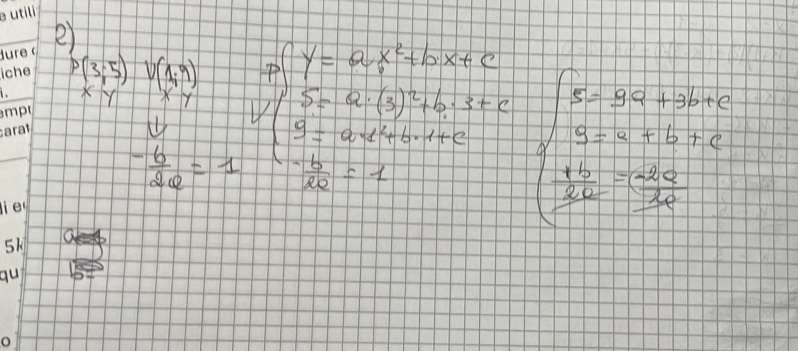 e utili
dure
iche
i.
empi
carat
li e
5k
qu
o
e)
P(3;5) V(1;9)
x y x y
↓
-b/2a = 1
P V { y = ax²+bx+c
5 = a·(3)²+b·3+c
9 = a·1²+b·1+c
-b/2a = 1
{ 5 = 9a+3b+c
9 = a+b+c
+b/2a = -2a/2a